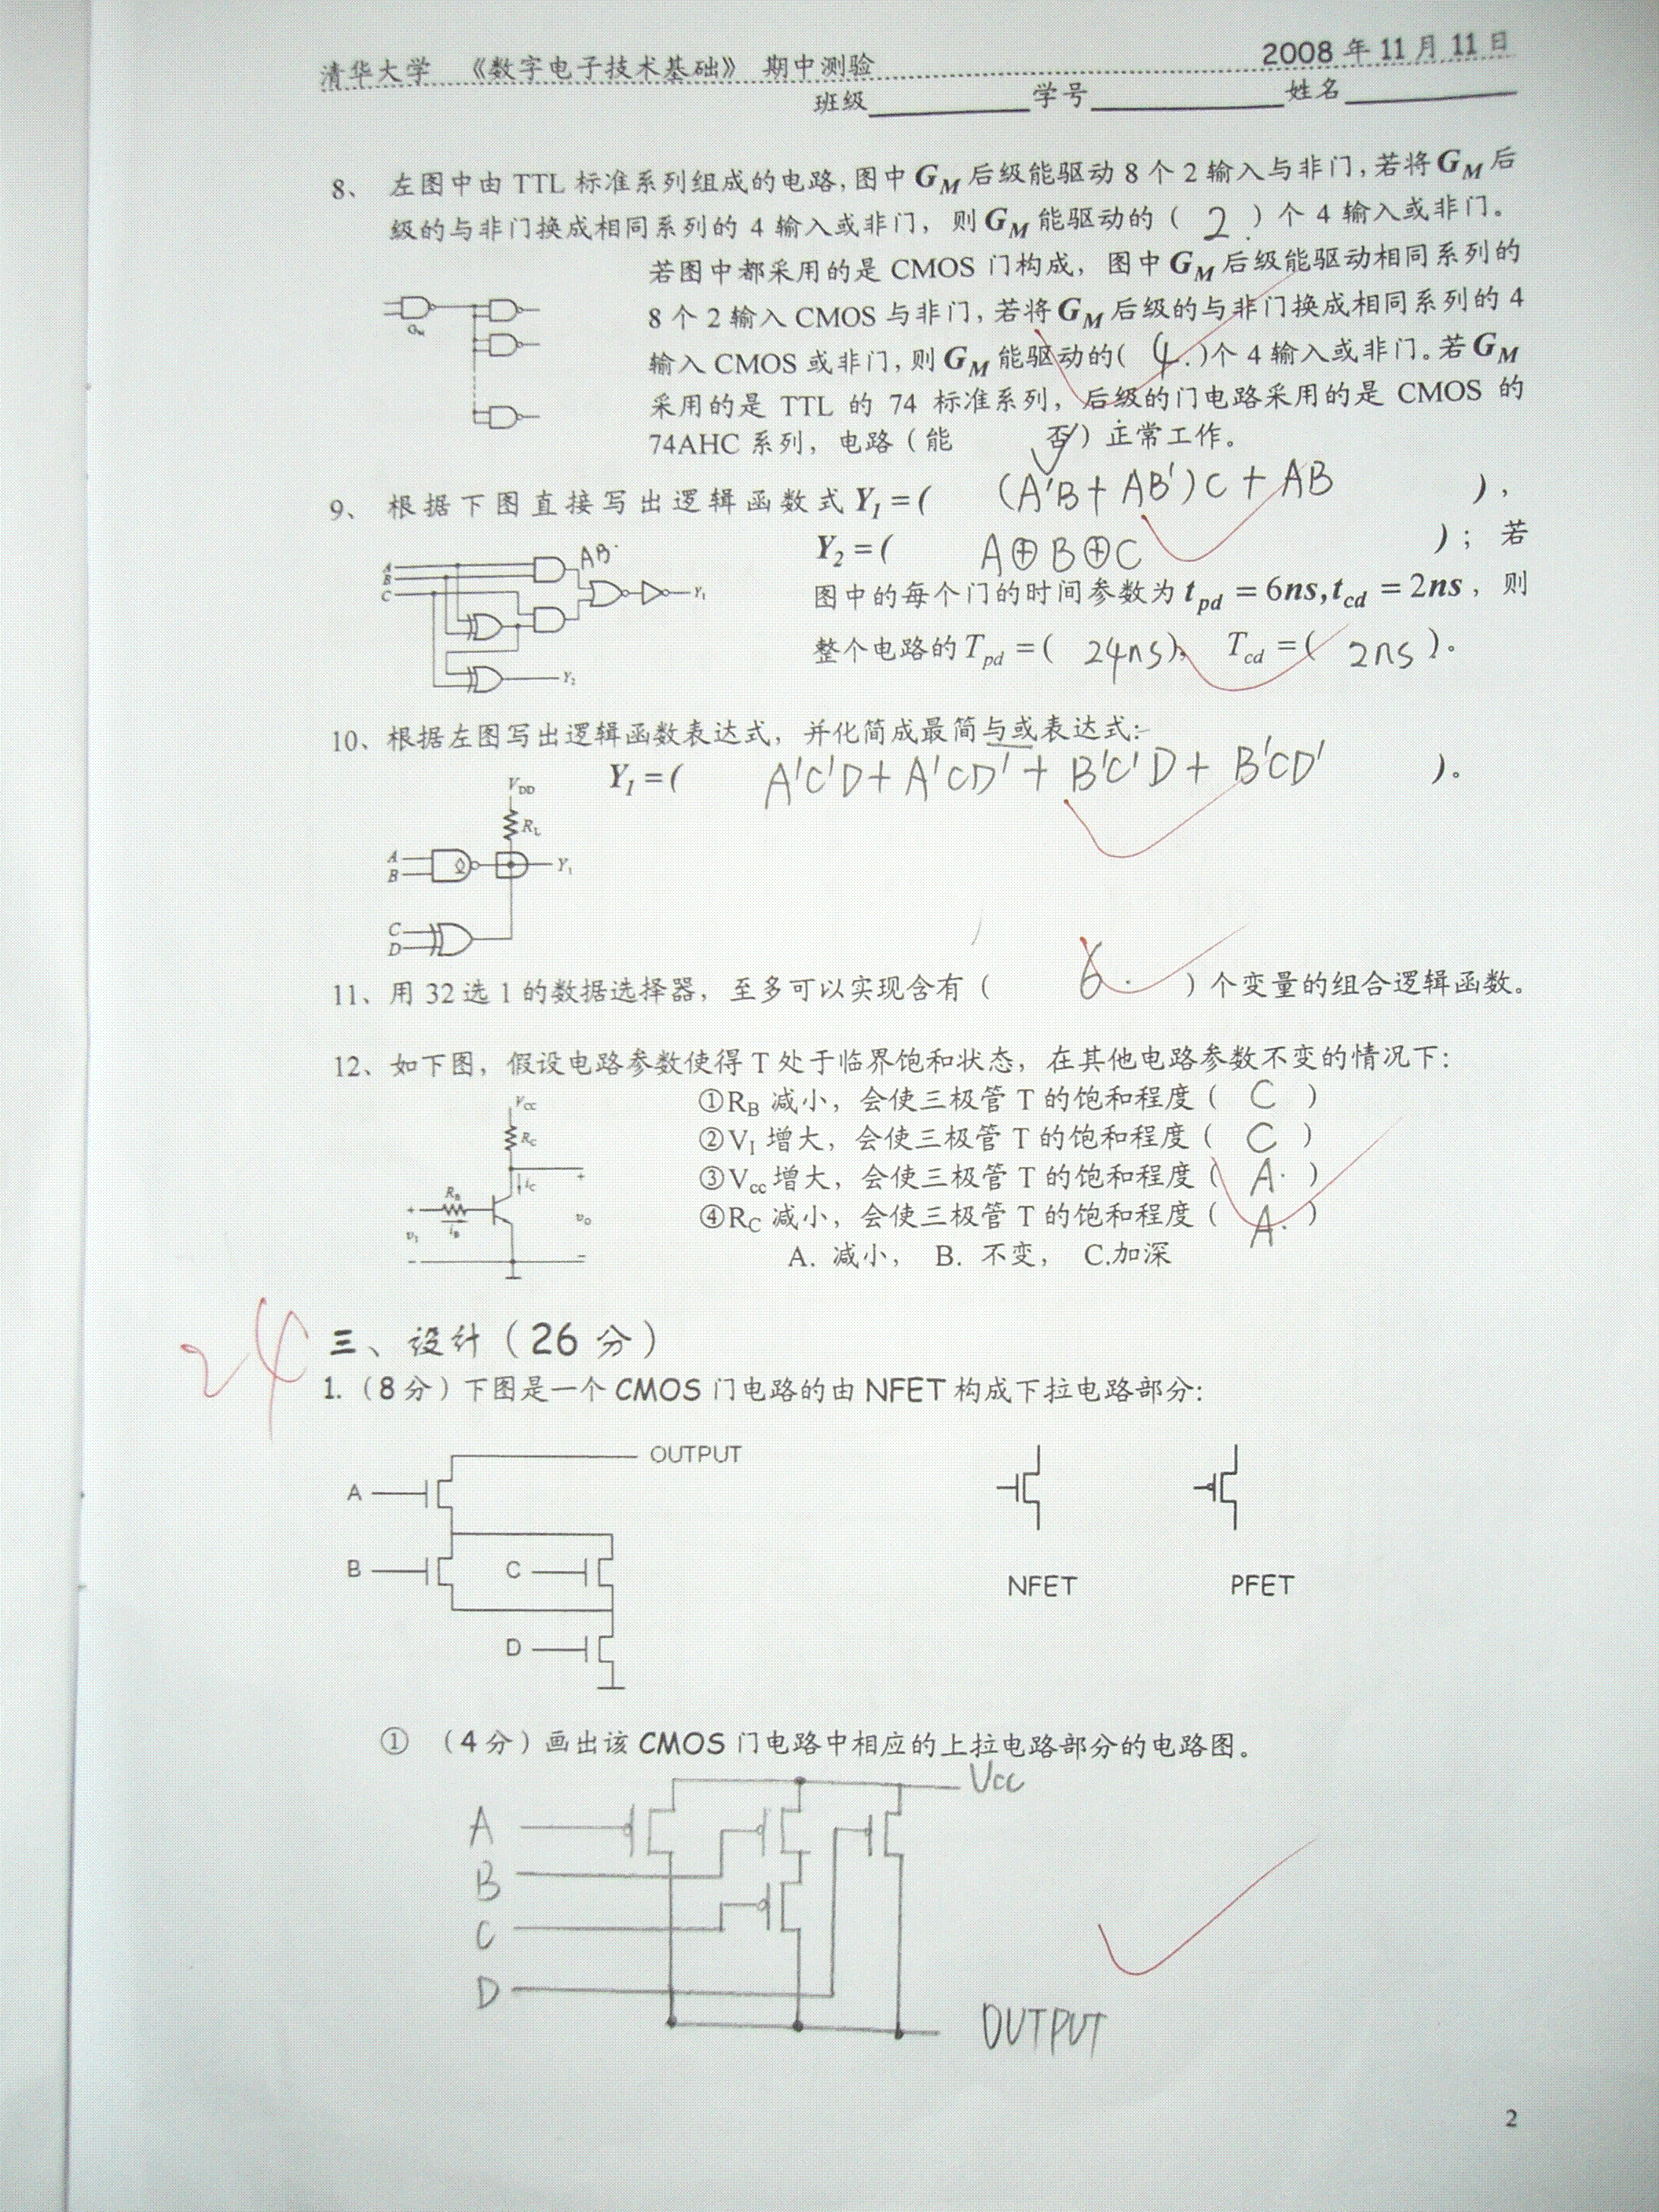 清华大学 《数字电子技术基础》 期中测验 2008年11月11日
班级 学号 姓名
8、 左图中由 TTL 标准系列组成的电路,图中 GM 后级能驱动 8 个 2 输入与非门,若将 GM 后
级的与非门换成相同系列的 4 输入或非门，则 GM 能驱动的（ 2 ）个 4 输入或非门。
若图中都采用的是 CMOS 门构成，图中 GM 后级能驱动相同系列的
8 个 2 输入 CMOS 与非门,若将 GM 后级的与非门换成相同系列的 4
输入 CMOS 或非门,则 GM 能驱动的( 4. )个 4 输入或非门。若 GM
采用的是 TTL 的 74 标准系列，后级的门电路采用的是 CMOS 的
74AHC 系列，电路（能 否）正常工作。
GM
9、 根据下图直接写出逻辑函数式 Y1 = ( (A'B + AB')C + AB )，
Y2 = ( A⊕B⊕C )；若
图中的每个门的时间参数为 tpd = 6ns, tcd = 2ns，则
整个电路的 Tpd = ( 24ns )， Tcd = ( 2ns )。
A
B
C
AB
Y1
Y2
10、根据左图写出逻辑函数表达式，并化简成最简与或表达式:
Y1 = ( A'C'D + A'CD' + B'C'D + B'CD' )。
VDD
RL
A
B
Y1
C
D
11、用 32 选 1 的数据选择器，至多可以实现含有（ 6. ）个变量的组合逻辑函数。
12、如下图，假设电路参数使得 T 处于临界饱和状态，在其他电路参数不变的情况下:
①RB 减小，会使三极管 T 的饱和程度（ C ）
②VI 增大，会使三极管 T 的饱和程度（ C ）
③Vcc 增大，会使三极管 T 的饱和程度（ A. ）
④RC 减小，会使三极管 T 的饱和程度（ A. ）
A. 减小， B. 不变， C.加深
VCC
RC
iC
RB
iB
+
vI
−
+
vO
−
24
三、设计（26 分）
1.（8分）下图是一个 CMOS 门电路的由 NFET 构成下拉电路部分:
OUTPUT
A
B
C
D
NFET PFET
① （4分）画出该 CMOS 门电路中相应的上拉电路部分的电路图。
Vcc
A
B
C
D
OUTPUT
2